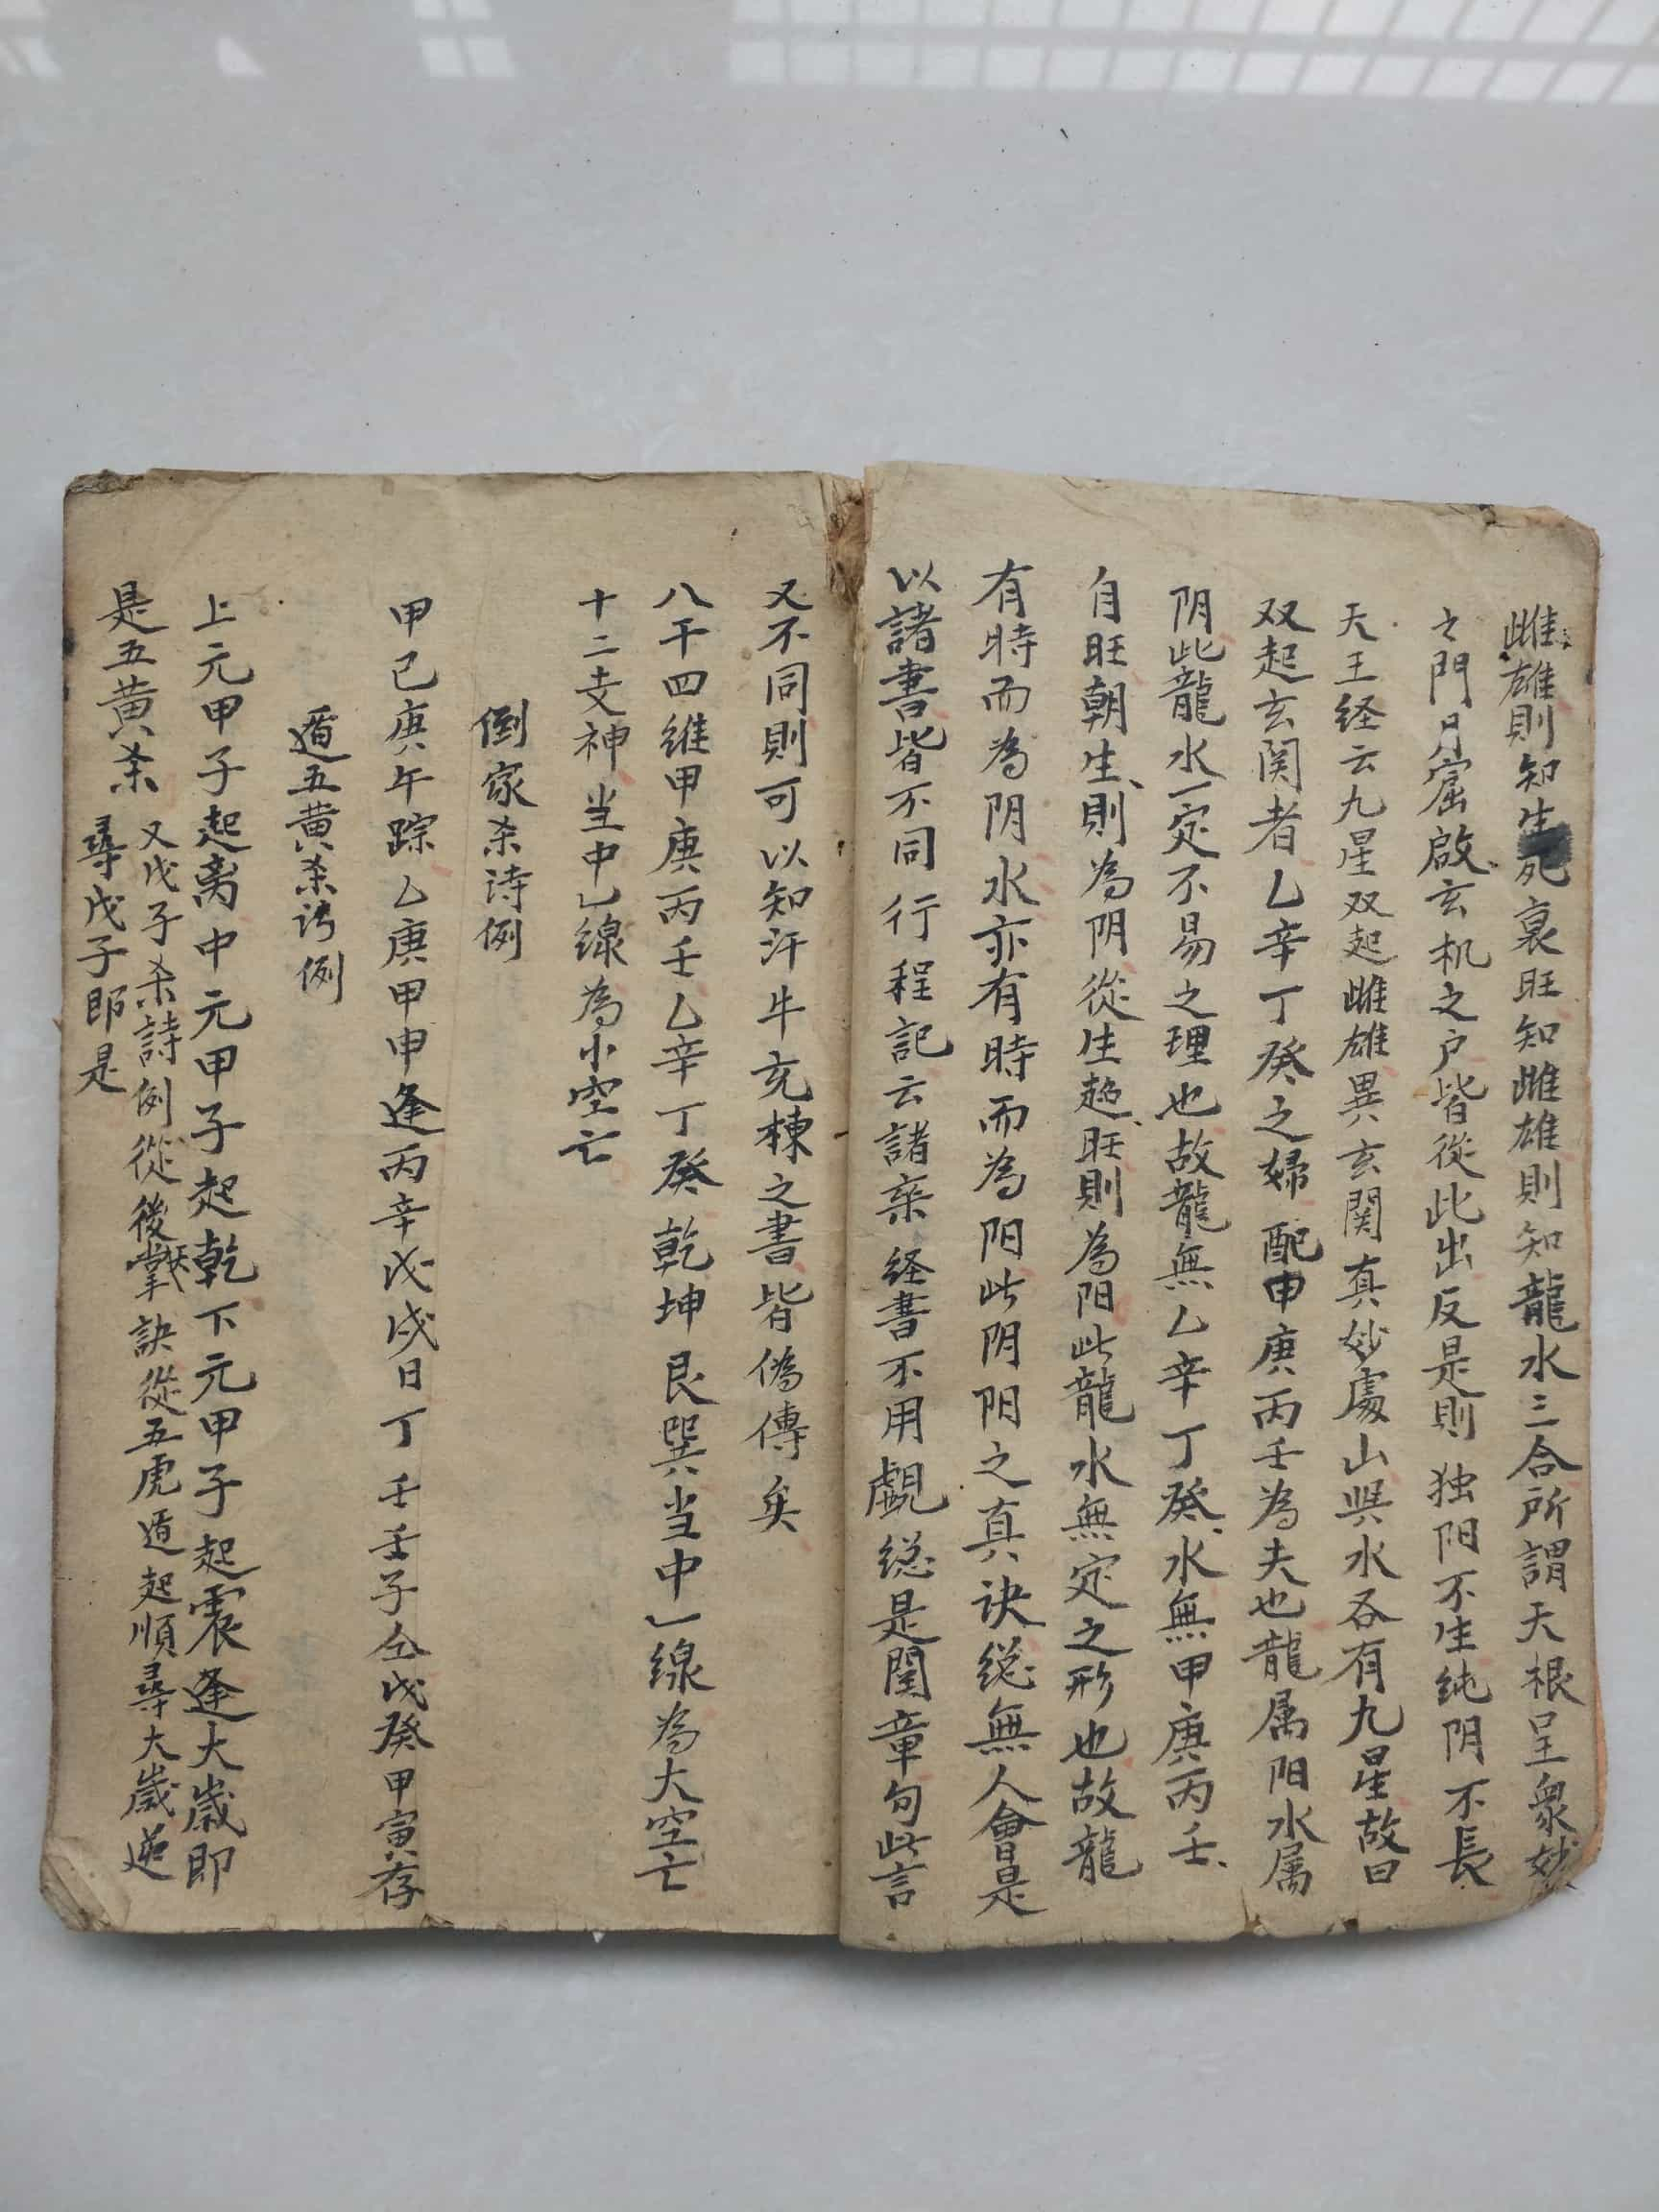 雌雄則知生死衰旺知雌雄則知龍水三合所謂天根呈衆妙
之門月窟啟玄机之户皆從此出反是則独阳不生纯阴不長
天王经云九星双起雌雄異玄関真妙處山與水各有九星故曰
双起玄関者乙辛丁癸之婦配甲庚丙壬為夫也龍属阳水属
阴此龍水一定不易之理也故龍無乙辛丁癸水無甲庚丙壬
自旺朝生則為阴從生趋旺則為阳此龍水無定之形也故龍
有時而為阴水亦有時而為阳此阴阳之真诀縂無人會是
以諸書皆不同行程記云諸家经書不用觑縂是閑章句此言
又不同則可以知汗牛充棟之書皆偽傳矣
八干四维甲庚丙壬乙辛丁癸乾坤艮巽当中一線為大空亡
十二支神当中一線為小空亡
倒家杀诗例
甲己庚午踪乙庚甲申逢丙辛戊戌日丁壬壬子仝戊癸甲寅存
遁五黄杀诗例
上元甲子起离中元甲子起乾下元甲子起震逢大歲即
是五黄杀 又戊子杀詩例從後掌訣從五虎遁起順尋大歲逆
尋戊子即是